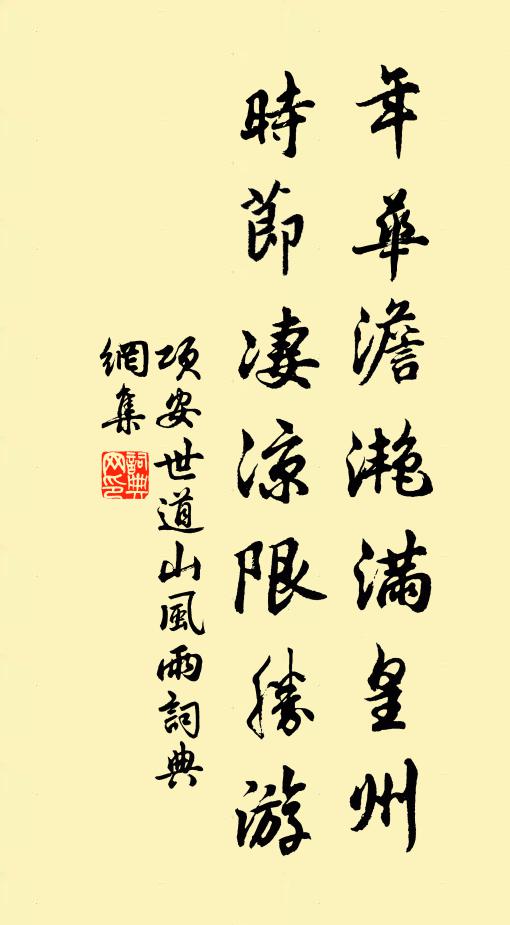 年華澹滟滿皇州
時節凄涼限勝游
項安世道山風雨詞典
網集
詞典網印